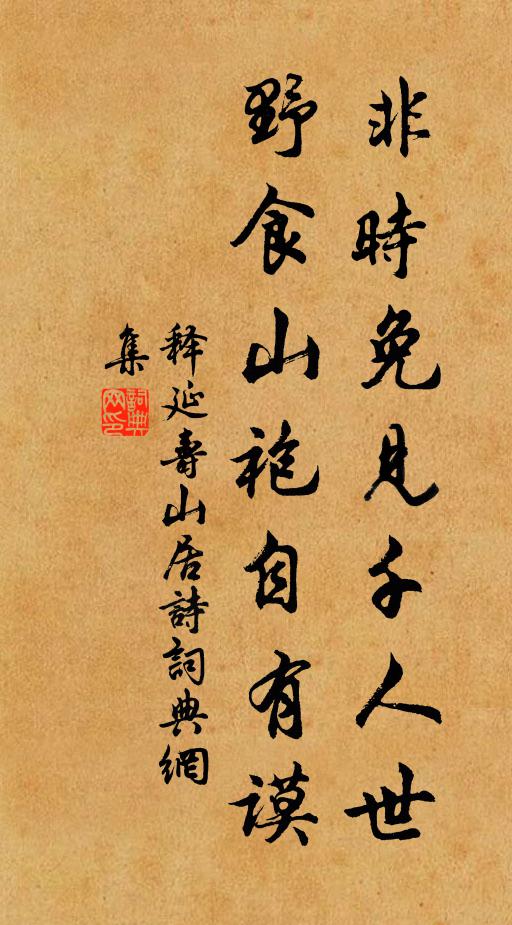 非時免見千人世
野食山袍自有謨
釋延壽山居詩詞典網
集
詞典網印